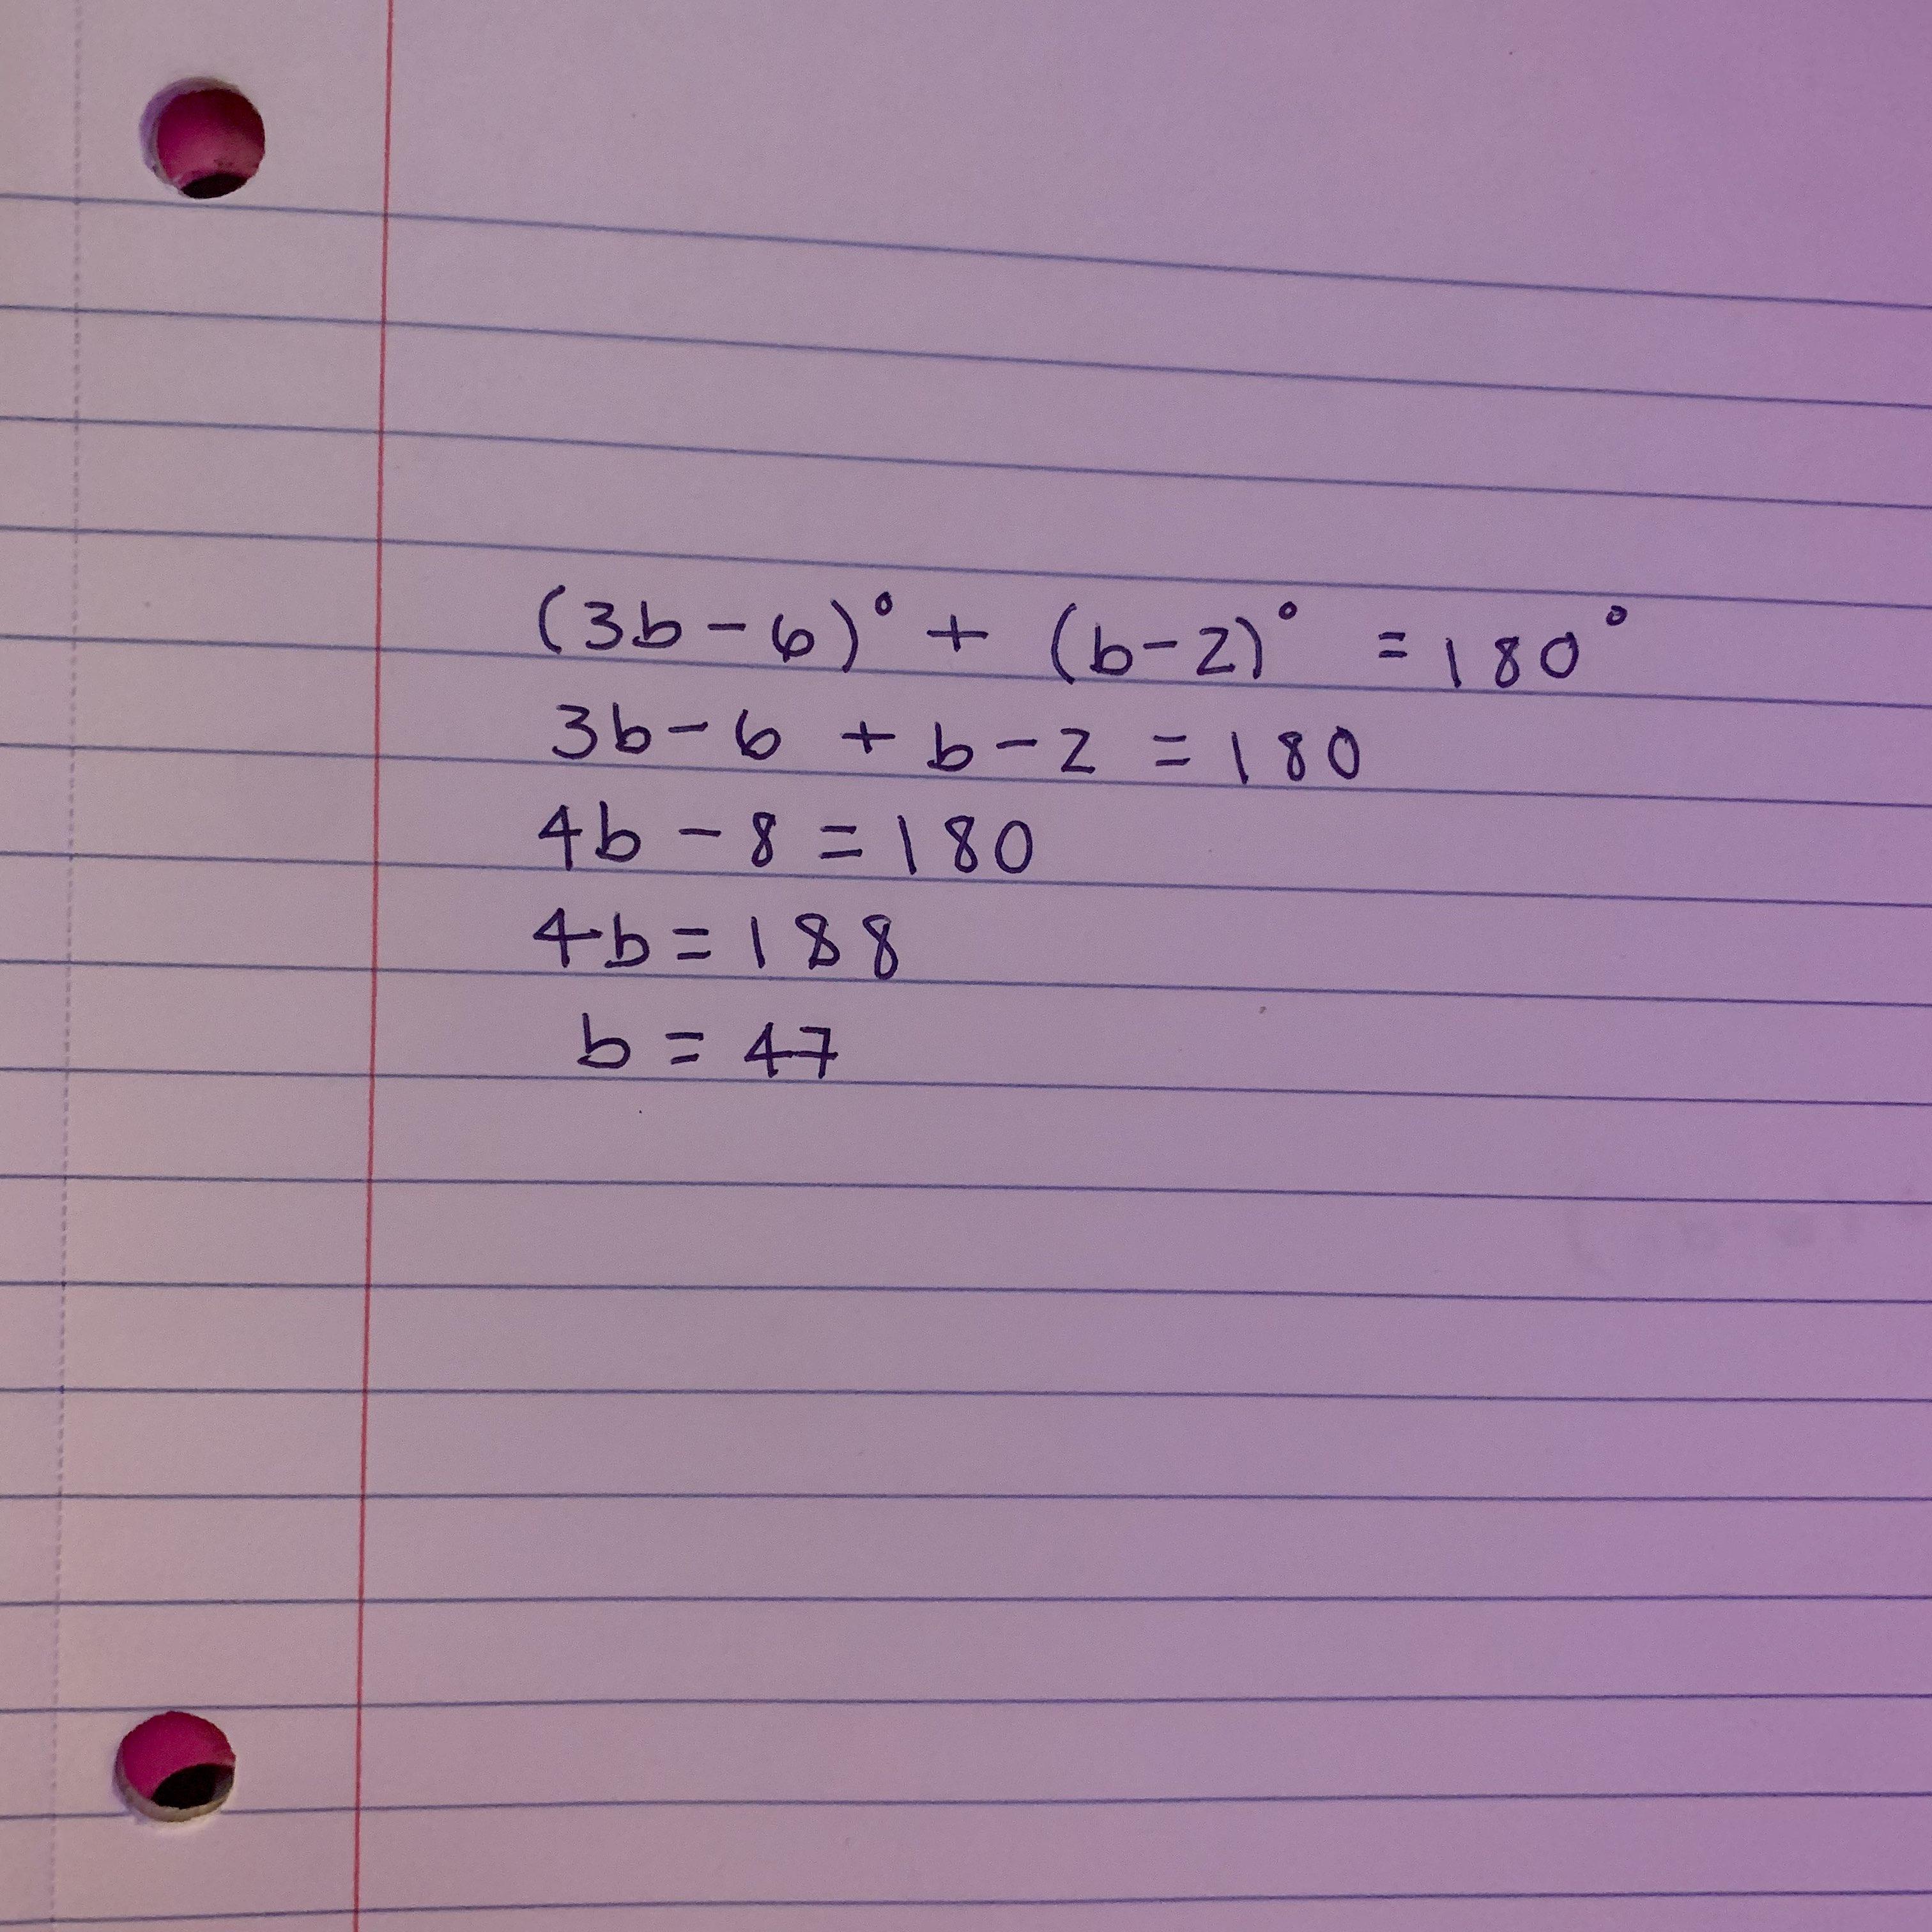 (3b-6)° + (b-2)° = 180°
3b-6 + b-2 = 180
4b - 8 = 180
4b = 188
b = 47